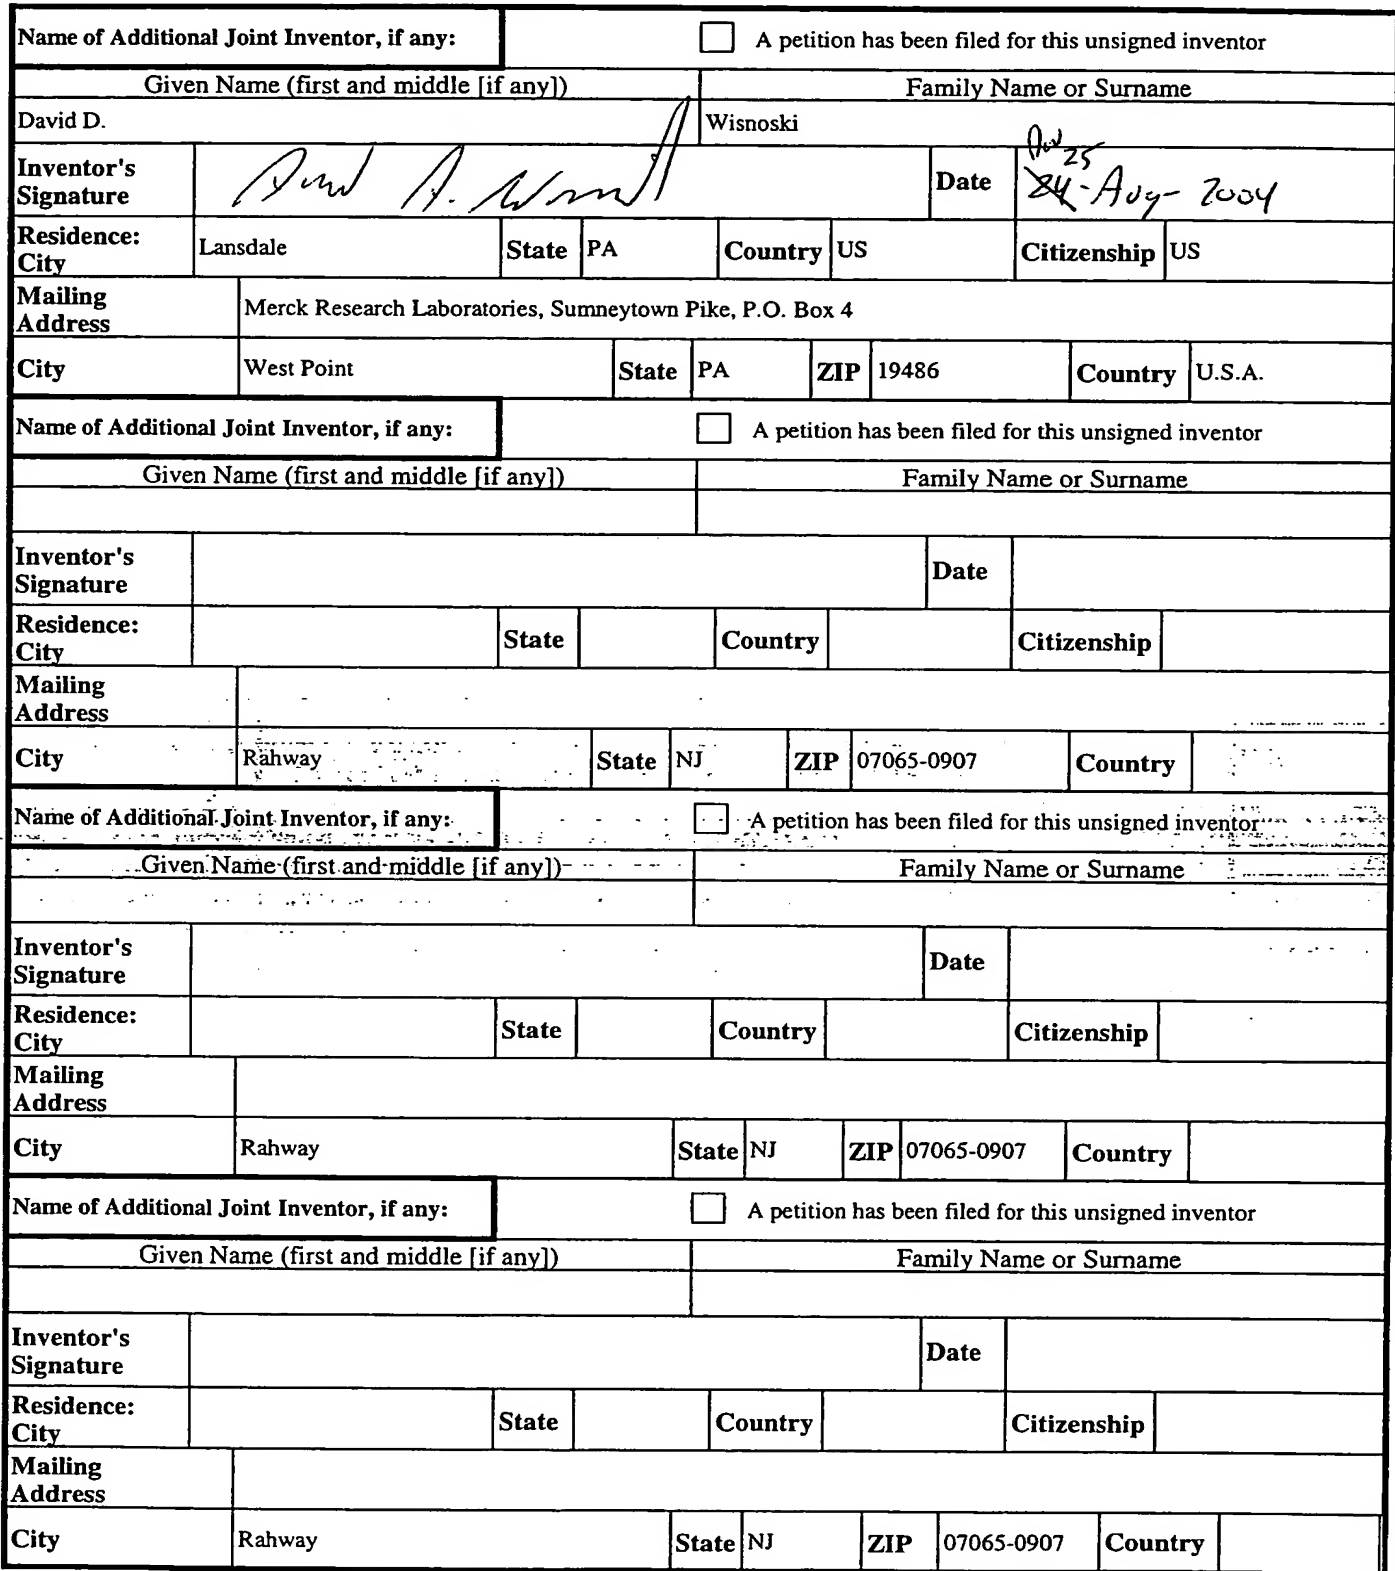 Name of Additional Joint Inventor, if any: A petition has been filed for this unsigned inventor
Given Name (first and middle [if any]) Family Name or Surname
David D. Wisnoski
Inventor's Signature Date 25
24-Aug-2004
Residence: City Lansdale State PA Country US Citizenship US
Mailing Address Merck Research Laboratories, Sumneytown Pike, P.O. Box 4
City West Point State PA ZIP 19486 Country U.S.A.
Name of Additional Joint Inventor, if any: A petition has been filed for this unsigned inventor
Given Name (first and middle [if any]) Family Name or Surname
Inventor's Signature Date
Residence: City State Country Citizenship
Mailing Address
City Rahway State NJ ZIP 07065-0907 Country
Name of Additional Joint Inventor, if any: A petition has been filed for this unsigned inventor
Given Name (first and middle [if any]) Family Name or Surname
Inventor's Signature Date
Residence: City State Country Citizenship
Mailing Address
City Rahway State NJ ZIP 07065-0907 Country
Name of Additional Joint Inventor, if any: A petition has been filed for this unsigned inventor
Given Name (first and middle [if any]) Family Name or Surname
Inventor's Signature Date
Residence: City State Country Citizenship
Mailing Address
City Rahway State NJ ZIP 07065-0907 Country